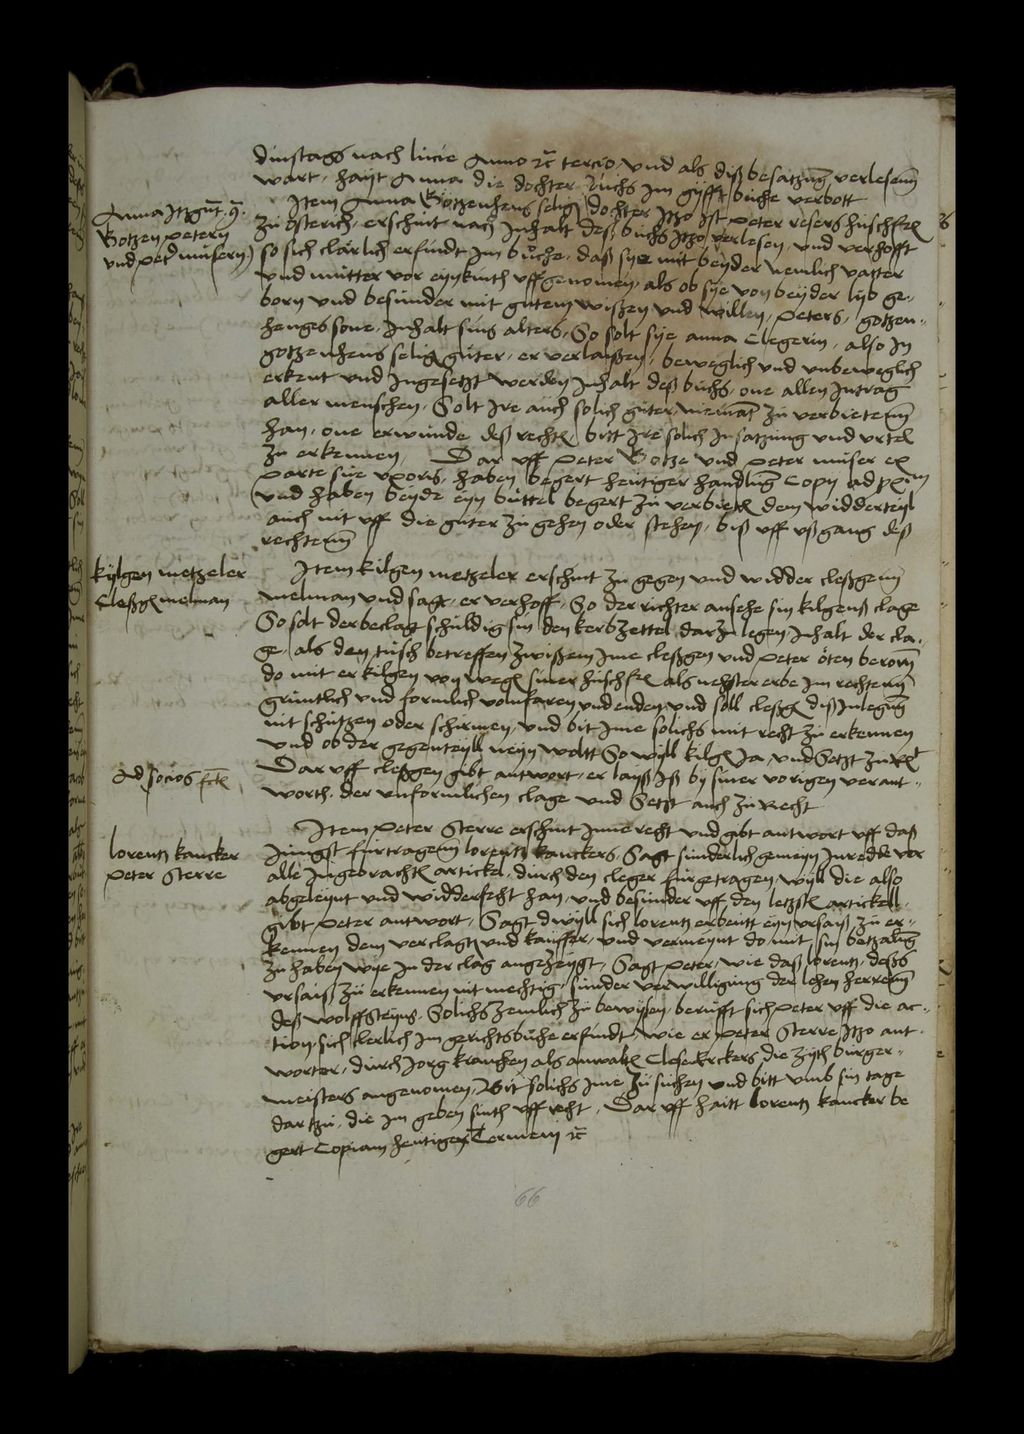 dinstags nach lucie Anno ꝛc tercio, vnd als diß besatzung verlesenn
wart, hayt Anna die dochter buchs im gyfft buche verbott
Anna
Gotzen petern
vnd peter musern
Item Anna Gotzenhens selig dochter itzo ist peter resers huszfraw
zu Osterich, erschint nach inhalt deß buchs itzo verlesen, vnd verhofft
so sich clarlich erfindt im buche, daß sye mit beyder nemlich vatter
vnd mutter vor eynkinth vffgenomen, als ob sye von beyder lyb ge-
born vnd besunder mit gutem wißen vnd willen, peters, gotzen-
henges sone, inhalt sins alters, So solt sye anna Clegerin, also in
gotzenhens selig guter, er verlaißen, beweglich vnd vnbeweglich
erkent vnd ingesetzt werden inhalt deß buchs, one allen intrag
aller menschen, Solt ire auch solich guter niemant zu verbietenn
han, one erwunde deß rechten, bitt ire solich insatzung vnd vrtel
zu erkennen, Dar vff Peter Gotze vnd peter muser ex
parte sue vxoris, haben begert heutiger handlung Copy ad proximum
vnd haben beyde eyn buttel begert zu verbieten dem widderteyl
auch nit vff die guter zu gehen oder stehen, biß vff vßgang deß
rechtenn
kylgen metzeler
Cleßgen melman
Item kilgen metzeler erschint zu gegen vnd widder cleßgenn
melman vnd sagt, er verhoff, So der richter ansehe sin kilgenß clage
So solt der beclagt schuldig sin den kerbzettel dar zu legen inhalt der cla-
ge, als den tusch betreffen zwißen ime cleßgen vnd peter öten
do mit er kilgen von wegen siner huszfrawen als nehster erbe im rechtenn
gruntlich vnd formlich volnfaren vnd enden, vnd soll cleßgen diß inlegung
nit schutzen oder schirmen, vnd bit ime solichs mit recht zu erkennen
vnd ob der gegenteyll neyn wolt So wyll kilgen Ja, vnd setzt zu recht
ad socios
Dar vff cleßgen gibt antwort, er layß iß by siner vorigen verant-
worth, der vnformlichen clage vnd setzt auch zu Recht
lorentz kancker
peter Sterre
Item Peter Sterre erschint inne recht vnd gibt antwort vff daß
jungst furtragenn lorentz kanckers, Sagt sunderlich gemeyn inredde vor
alle ingebrachten artickel, durch den cleger furgetragen, wyll die also
abgeleynt vnd widderfecht han, vnd besunder vff den letzsten artickell
gibt peter antwort, Sagt dwyll sich lorentz erbeutt eyn vrsaiß zu er-
kennen dem verclagten vnd kauffer, vnd vermeynt do mit sin betzalung
zu haben wye in der clag angezeygt, Sagt peter, wie daß lorentz, deßs
vrsaiß zu erkennen nit mechtig, sunder verwilligung der lehen herrenn
deß wolffsteyns, Solichs zemlich zu bewysen, berufft sich peter vff die ac-
tion, sich clerlich im gerichtsbuche erfindt, wie er peter Sterre itzo ant-
worter, durch Jorg krauchen als anwalten Clese Erckers, die zyth burger-
meisters angenomen, Bit solichs ime zu suchen vnd bitt vmb sin tage
dar tzu, die im geben sinth vff recht, Dar vff haitt lorentz kancker be
gert Copiam heutigen Termeni ꝛc
66